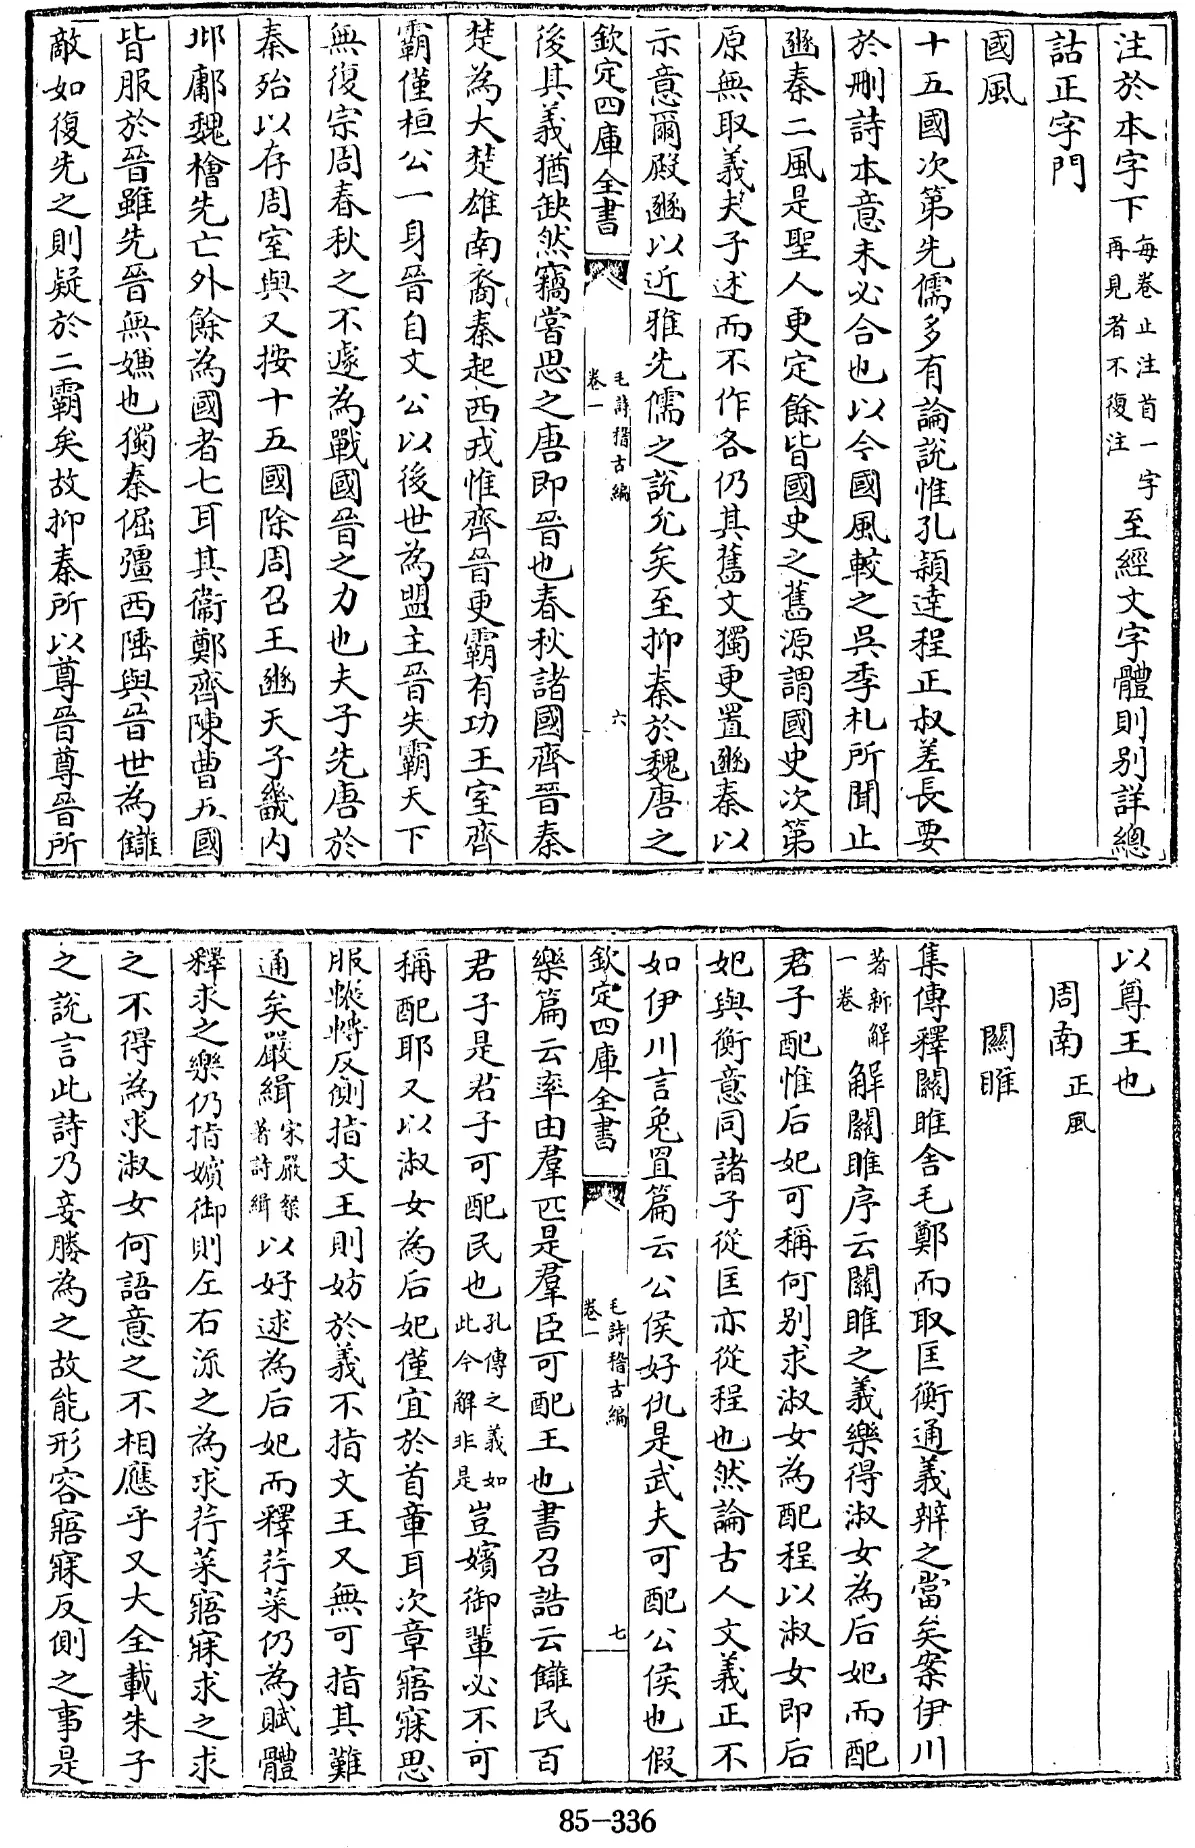 注於本字下每卷止注首一字再見者不復注至經文字體則别詳總
詁正字門
國風
十五國次第先儒多有論說惟孔穎達程正叔差長要
於刪詩本意未必合也以今國風較之吳季札所聞止
豳秦二風是聖人更定餘皆國史之舊源謂國史次第
原無取義夫子述而不作各仍其舊文獨更置豳秦以
示意爾殿豳以近雅先儒之說允矣至抑秦於魏唐之
欽定四庫全書
毛詩稽古編
卷一
六
後其義猶缺然竊嘗思之唐即晉也春秋諸國齊晉秦
楚為大楚雄南裔秦起西戎惟齊晉更霸有功王室齊
霸僅桓公一身晉自文公以後世為盟主晉失霸天下
無復宗周春秋之不遽為戰國晉之力也夫子先唐於
秦殆以存周室與又按十五國除周召王豳天子畿內
邶鄘魏檜先亡外餘為國者七耳其衞鄭齊陳曹五國
皆服於晉雖先晉無嫌也獨秦倔彊西陲與晉世為讎
敵如復先之則疑於二霸矣故抑秦所以尊晉尊晉所
以尊王也
周南正風
關雎
集傳釋關雎舍毛鄭而取匡衡通義辨之當矣案伊川
著新解一卷解關雎序云關雎之義樂得淑女為后妃而配
君子配惟后妃可稱何别求淑女為配程以淑女即后
妃與衡意同諸子從匡亦從程也然論古人文義正不
如伊川言兔罝篇云公侯好仇是武夫可配公侯也假
欽定四庫全書
毛詩稽古編
卷一
七
樂篇云率由羣匹是羣臣可配王也書召誥云讎民百
君子是君子可配民也孔傳之義如此今解非是豈嬪御輩必不可
稱配耶又以淑女為后妃僅宜於首章耳次章寤寐思
服輾轉反側指文王則妨於義不指文王又無可指其難
通矣嚴緝宋嚴粲著詩緝以好逑為后妃而釋荇菜仍為賦體
釋求之樂仍指嬪御則左右流之為求荇菜寤寐求之求
之不得為求淑女何語意之不相應乎又大全載朱子
之說言此詩乃妾媵為之故能形容寤寐反側之事是
85-336